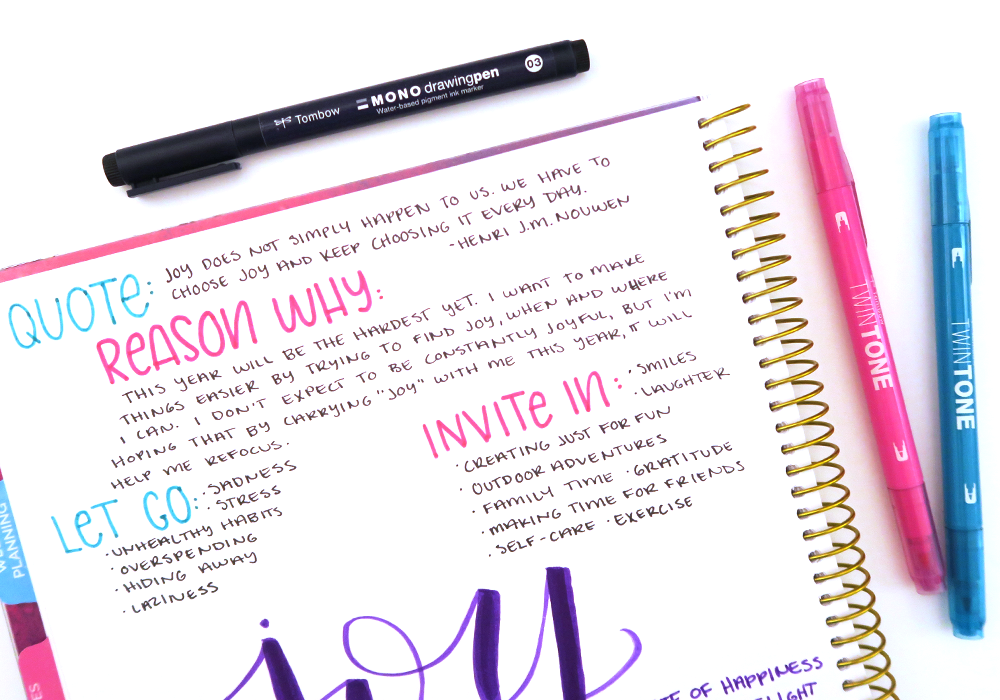 Tombow MONO drawingpen 03
Water-based pigment ink marker
QUOTE: JOY DOES NOT SIMPLY HAPPEN TO US. WE HAVE TO
CHOOSE JOY AND KEEP CHOOSING IT EVERY DAY.
-HENRI J.M. NOUWEN
REASON WHY:
THIS YEAR WILL BE THE HARDEST YET. I WANT TO MAKE
THINGS EASIER BY TRYING TO FIND JOY, WHEN AND WHERE
I CAN. I DON'T EXPECT TO BE CONSTANTLY JOYFUL, BUT I'M
HOPING THAT BY CARRYING "JOY" WITH ME THIS YEAR, IT WILL
HELP ME REFOCUS.
LET GO: · SADNESS
· STRESS
· UNHEALTHY HABITS
· OVERSPENDING
· HIDING AWAY
· LAZINESS
INVITE IN: · SMILES
· LAUGHTER
· CREATING JUST FOR FUN
· OUTDOOR ADVENTURES
· FAMILY TIME · GRATITUDE
· MAKING TIME FOR FRIENDS
· SELF-CARE · EXERCISE
joy
OF HAPPINESS
PLANNING
TWINTONE
TWINTONE